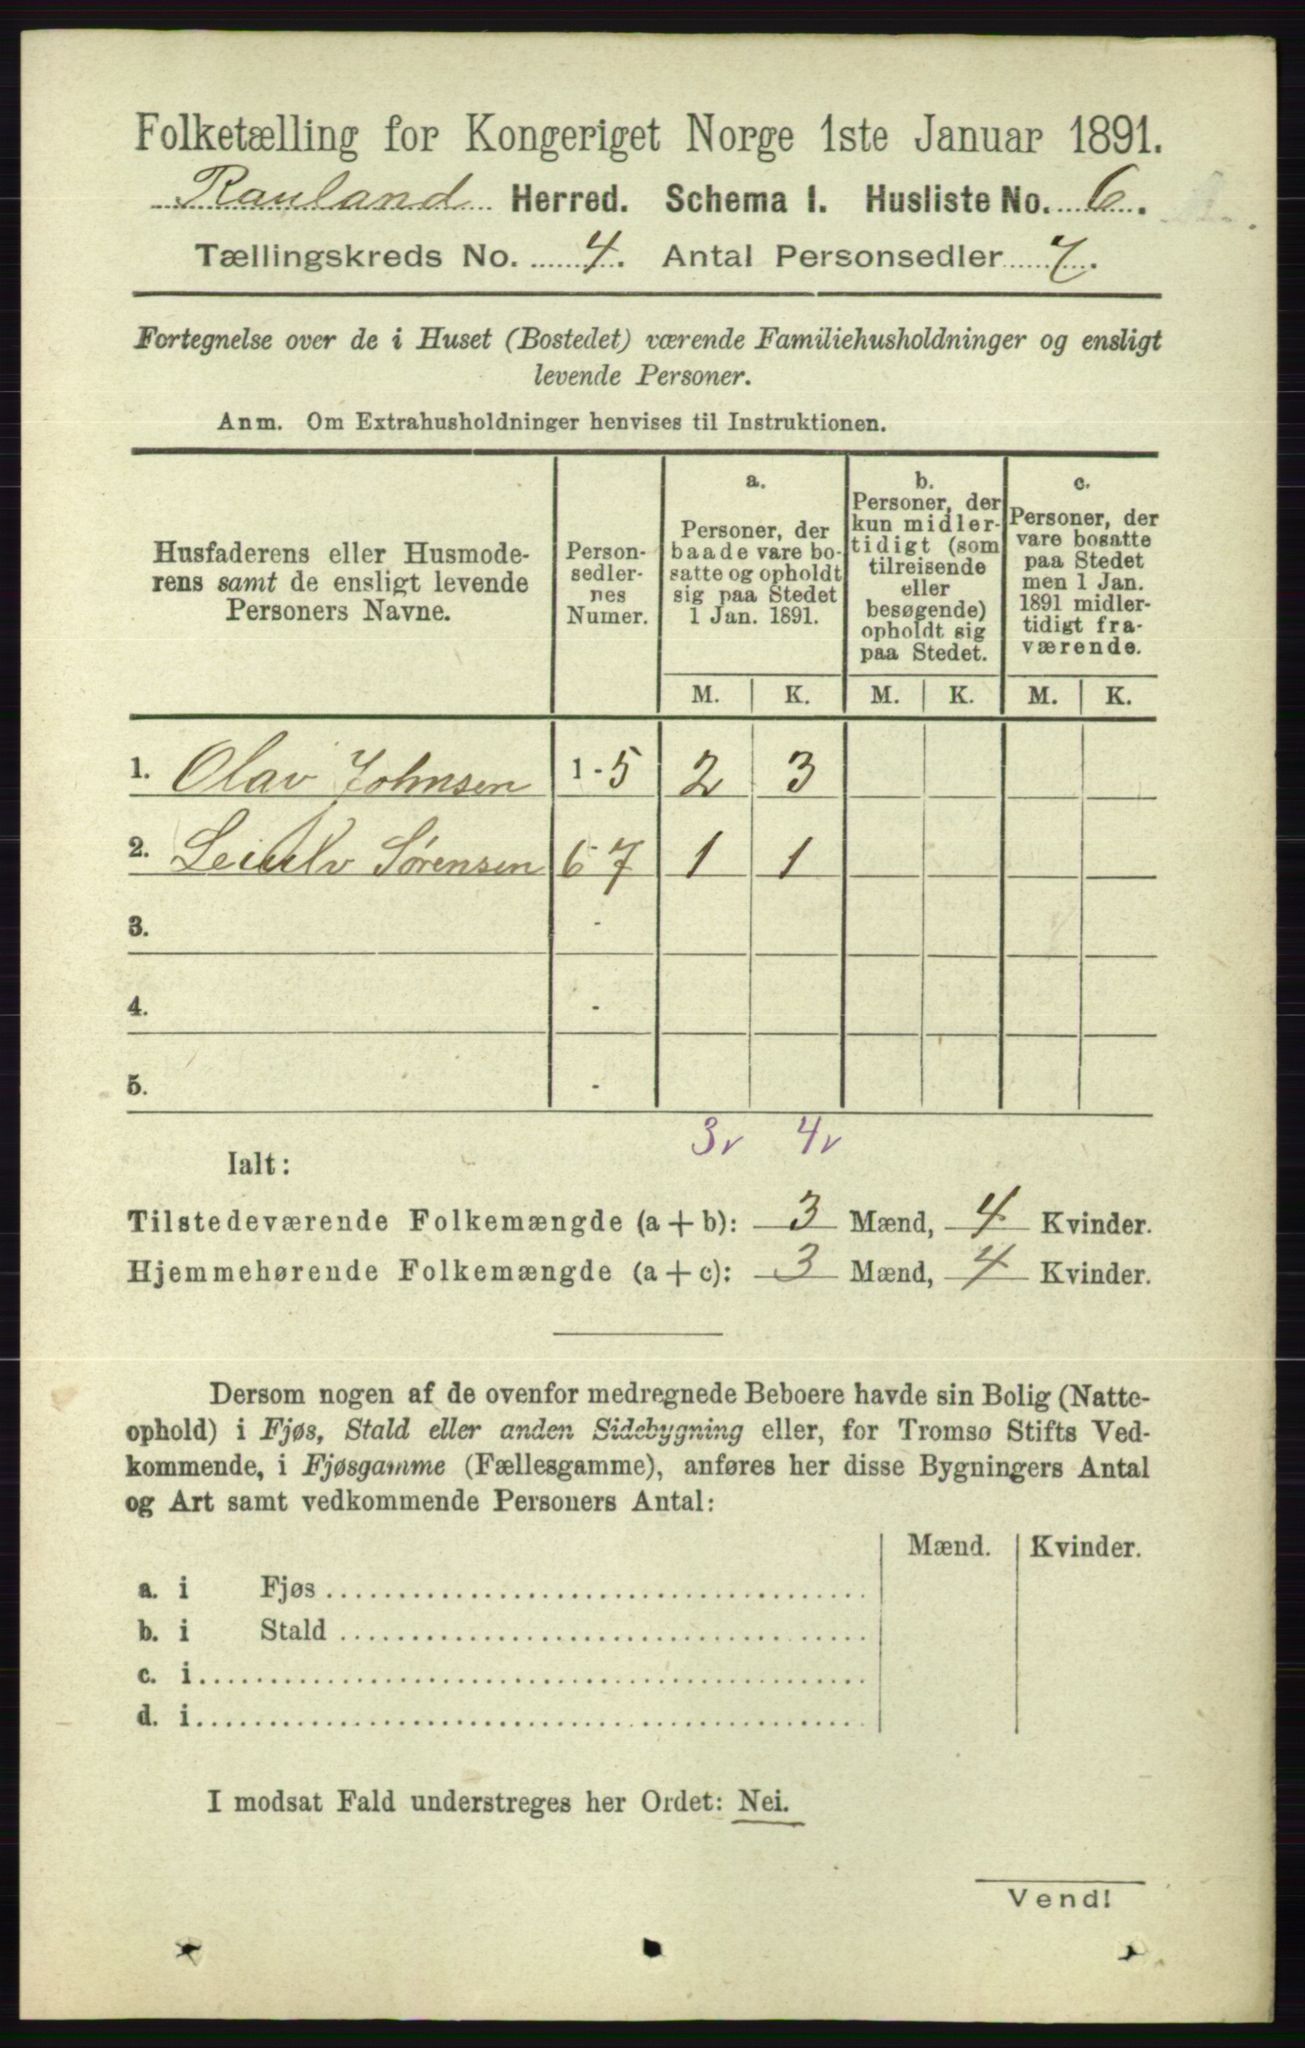 Folketælling for Kongeriget Norge 1ste Januar 1891.
Rauland Herred. Schema 1. Husliste No. 6.
Tællingskreds No. 4. Antal Personsedler 7.
Fortegnelse over de i Huset (Bostedet) værende Familiehusholdninger og ensligt
levende Personer.
Anm. Om Extrahusholdninger henvises til Instruktionen.
Husfaderens eller Husmode-
rens samt de ensligt levende
Personers Navne.
Person-
sedler-
nes
Numer.
a.
Personer, der
baade vare bo-
satte og opholdt
sig paa Stedet
1 Jan. 1891.
b.
Personer, der
kun midler-
tidigt (som
tilreisende
eller
besøgende)
opholdt sig
paa Stedet.
c.
Personer, der
vare bosatte
paa Stedet
men 1 Jan.
1891 midler-
tidigt fra-
værende.
M. K. M. K. M. K.
1. Olav Johnsen 1-5 2 3
2. Sørensen 6-7 1 1
3. -
4. -
5. -
3v 4v
Ialt:
Tilstedeværende Folkemængde (a+b): 3 Mænd, 4 Kvinder.
Hjemmehørende Folkemængde (a+c): 3 Mænd, 4 Kvinder.
Dersom nogen af de ovenfor medregnede Beboere havde sin Bolig (Natte-
ophold) i Fjøs, Stald eller anden Sidebygning eller, for Tromsø Stifts Ved-
kommende, i Fjøsgamme (Fællesgamme), anføres her disse Bygningers Antal
og Art samt vedkommende Personers Antal:
Mænd. Kvinder.
a. i Fjøs
b. i Stald
c. i
d. i
I modsat Fald understreges her Ordet: Nei.
Vend!